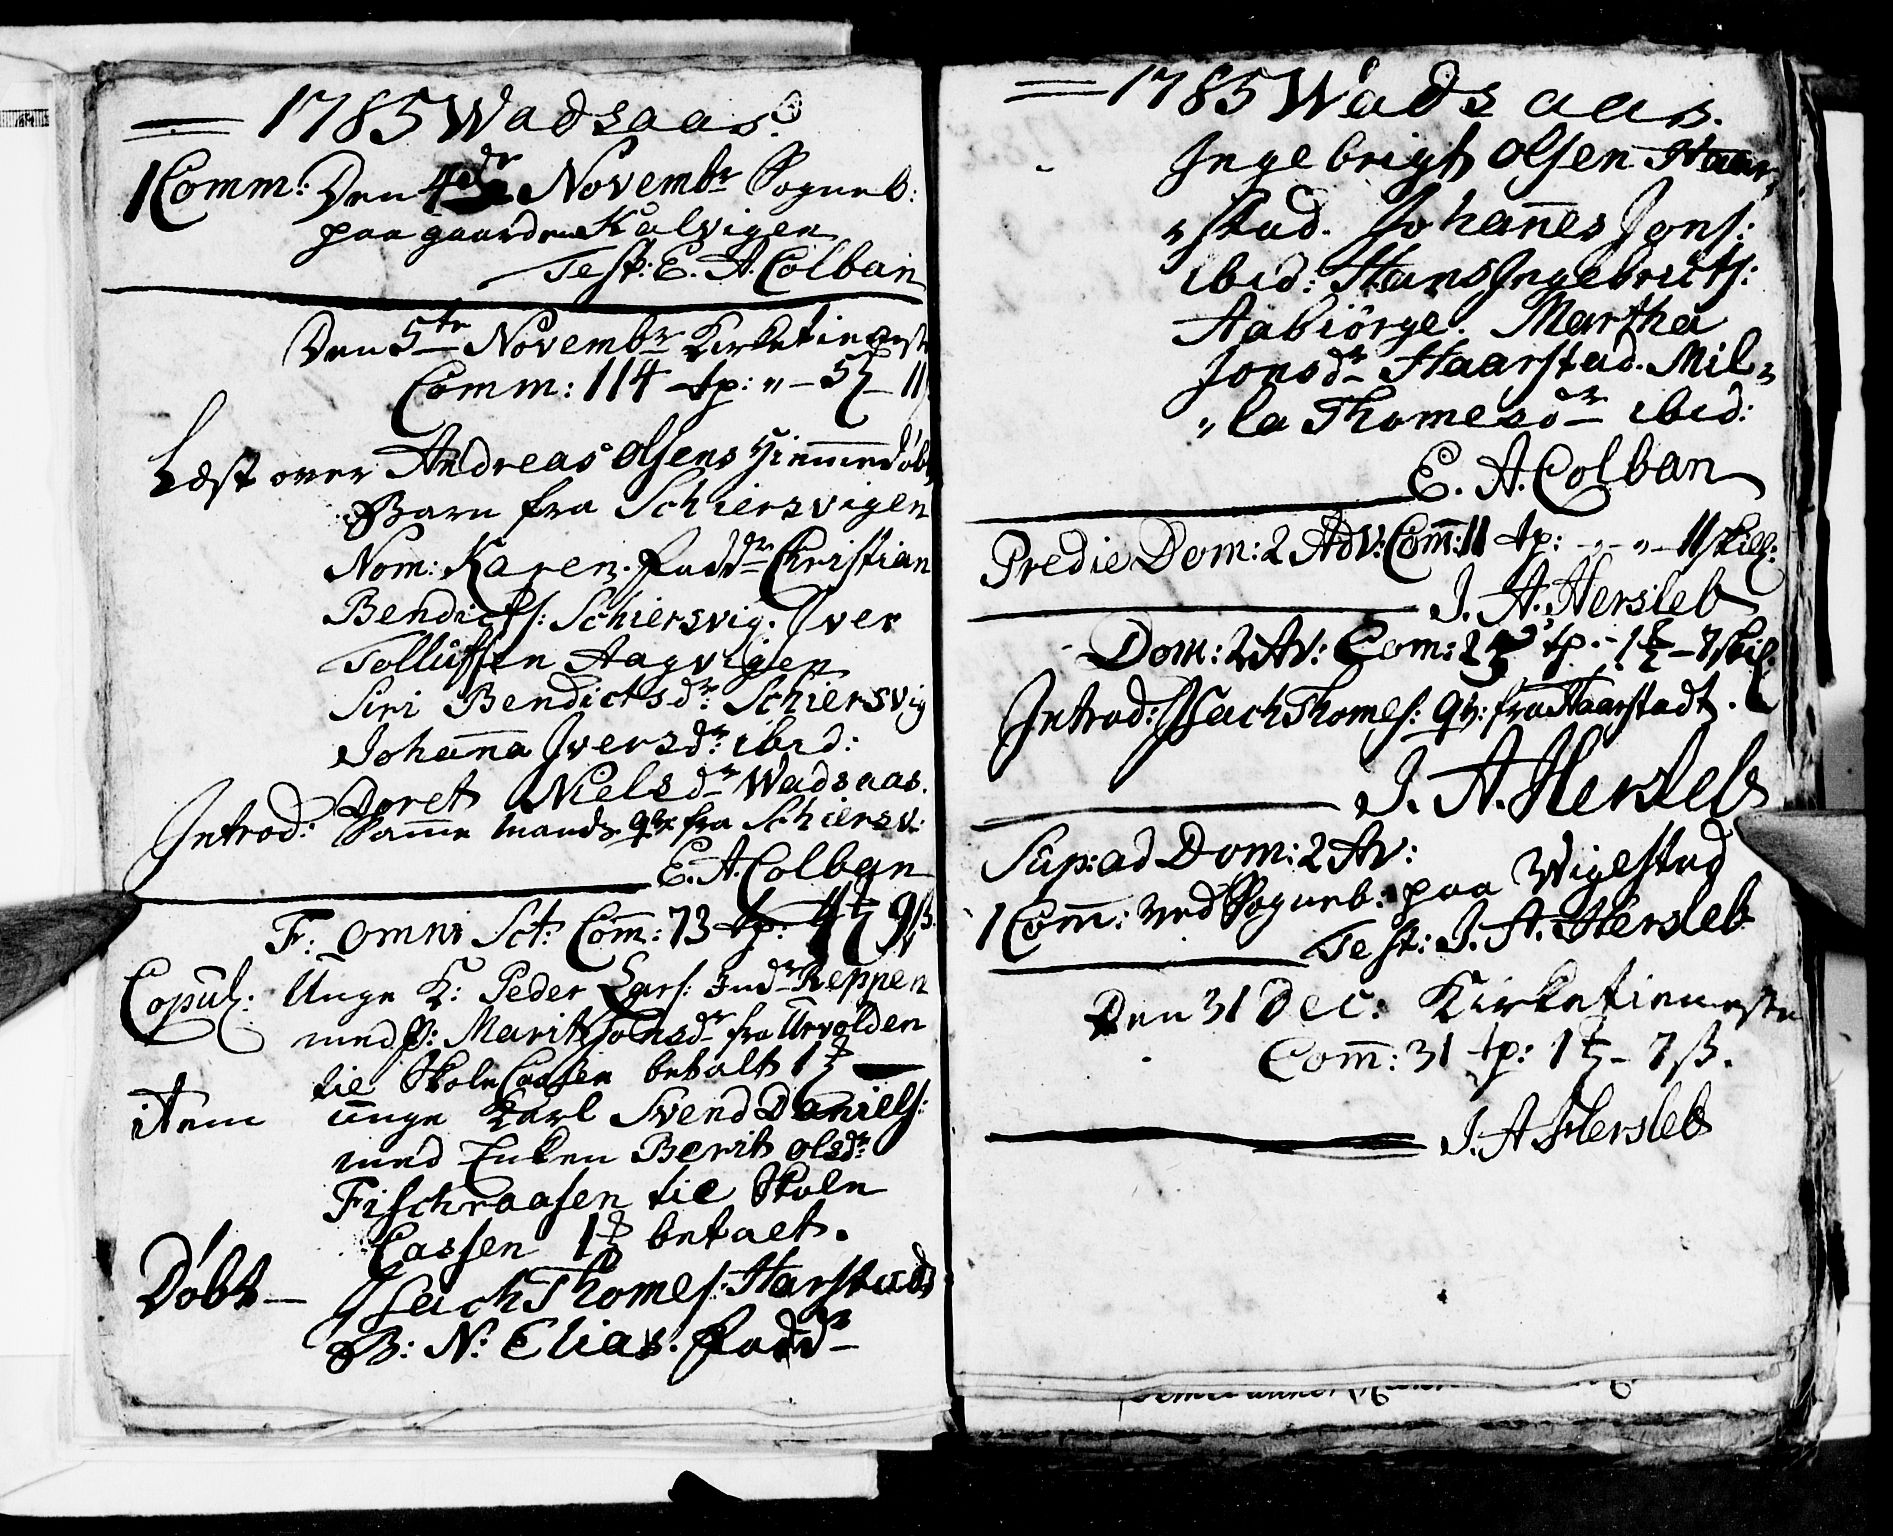 1785 Wadsaas.
1 Comm: Den 4de Novembr Sogneb:
paa gaarden Kalvigen
Test: E. A. Colban
Den 5te Novembr Kirketieneste
Comm: 114 tp: " – 5 – 11
Læst over Andreas Olsens Hiemmedøbt
Barn fra Schiersvigen
Nom: Karen. fadd: Christian
Bendicts: Schiersvig. Iver
Tolluffsen Aagvigen
Siri Bendictsdr Schiersvig
Johanna Iversdr: ibid:
Doret Nielsdr Wadsaas.
Introd: Samme Mands qv: fra Schiersv:
E. A. Colban
F: Omni Sct: Comm: 73 tp: 4 9 s.
Copul: Unge K: Peder Lars: Reppen
med P: Marit Johnsdr fra Urvolden
til Skole Cassen betalt 1
item unge Karl Svend Daniels:
med Enken Berit Olsdr:
Fischraasen til Skole
Cassen 1 betalt.
Døbt – Isach Thomes: Harstads
B: N: Elias. fadd
1785 Wadsaas.
Ingebrigt Olsen Haar,
„stad. Johannes Jons:
ibid: Hans Ingebricts:
Aabiörge. Martha
Jonsdr Haarstad. Mil,
„la Thomesdr ibid:
E. A. Colban
Predie Dom: 2 Adv: Comm: 11 tp: – „ – „ – 11 skill:
J. A. Hersleb
Dom: 2 Av: Com: 2 tp. – 1 – 7 skil:
Introd: Isach Thomes: qv: fra Haarstadt.
J. A. Hersleb
Sup: ad Dom: 2 Av:
1 Comm: ved Sogneb: paa Wigestad
Test: J. A. Hersleb
Den 31 Dec: Kirketieneste
Comm: 31 tp: 1 – 7 s.
J. A. Hersleb